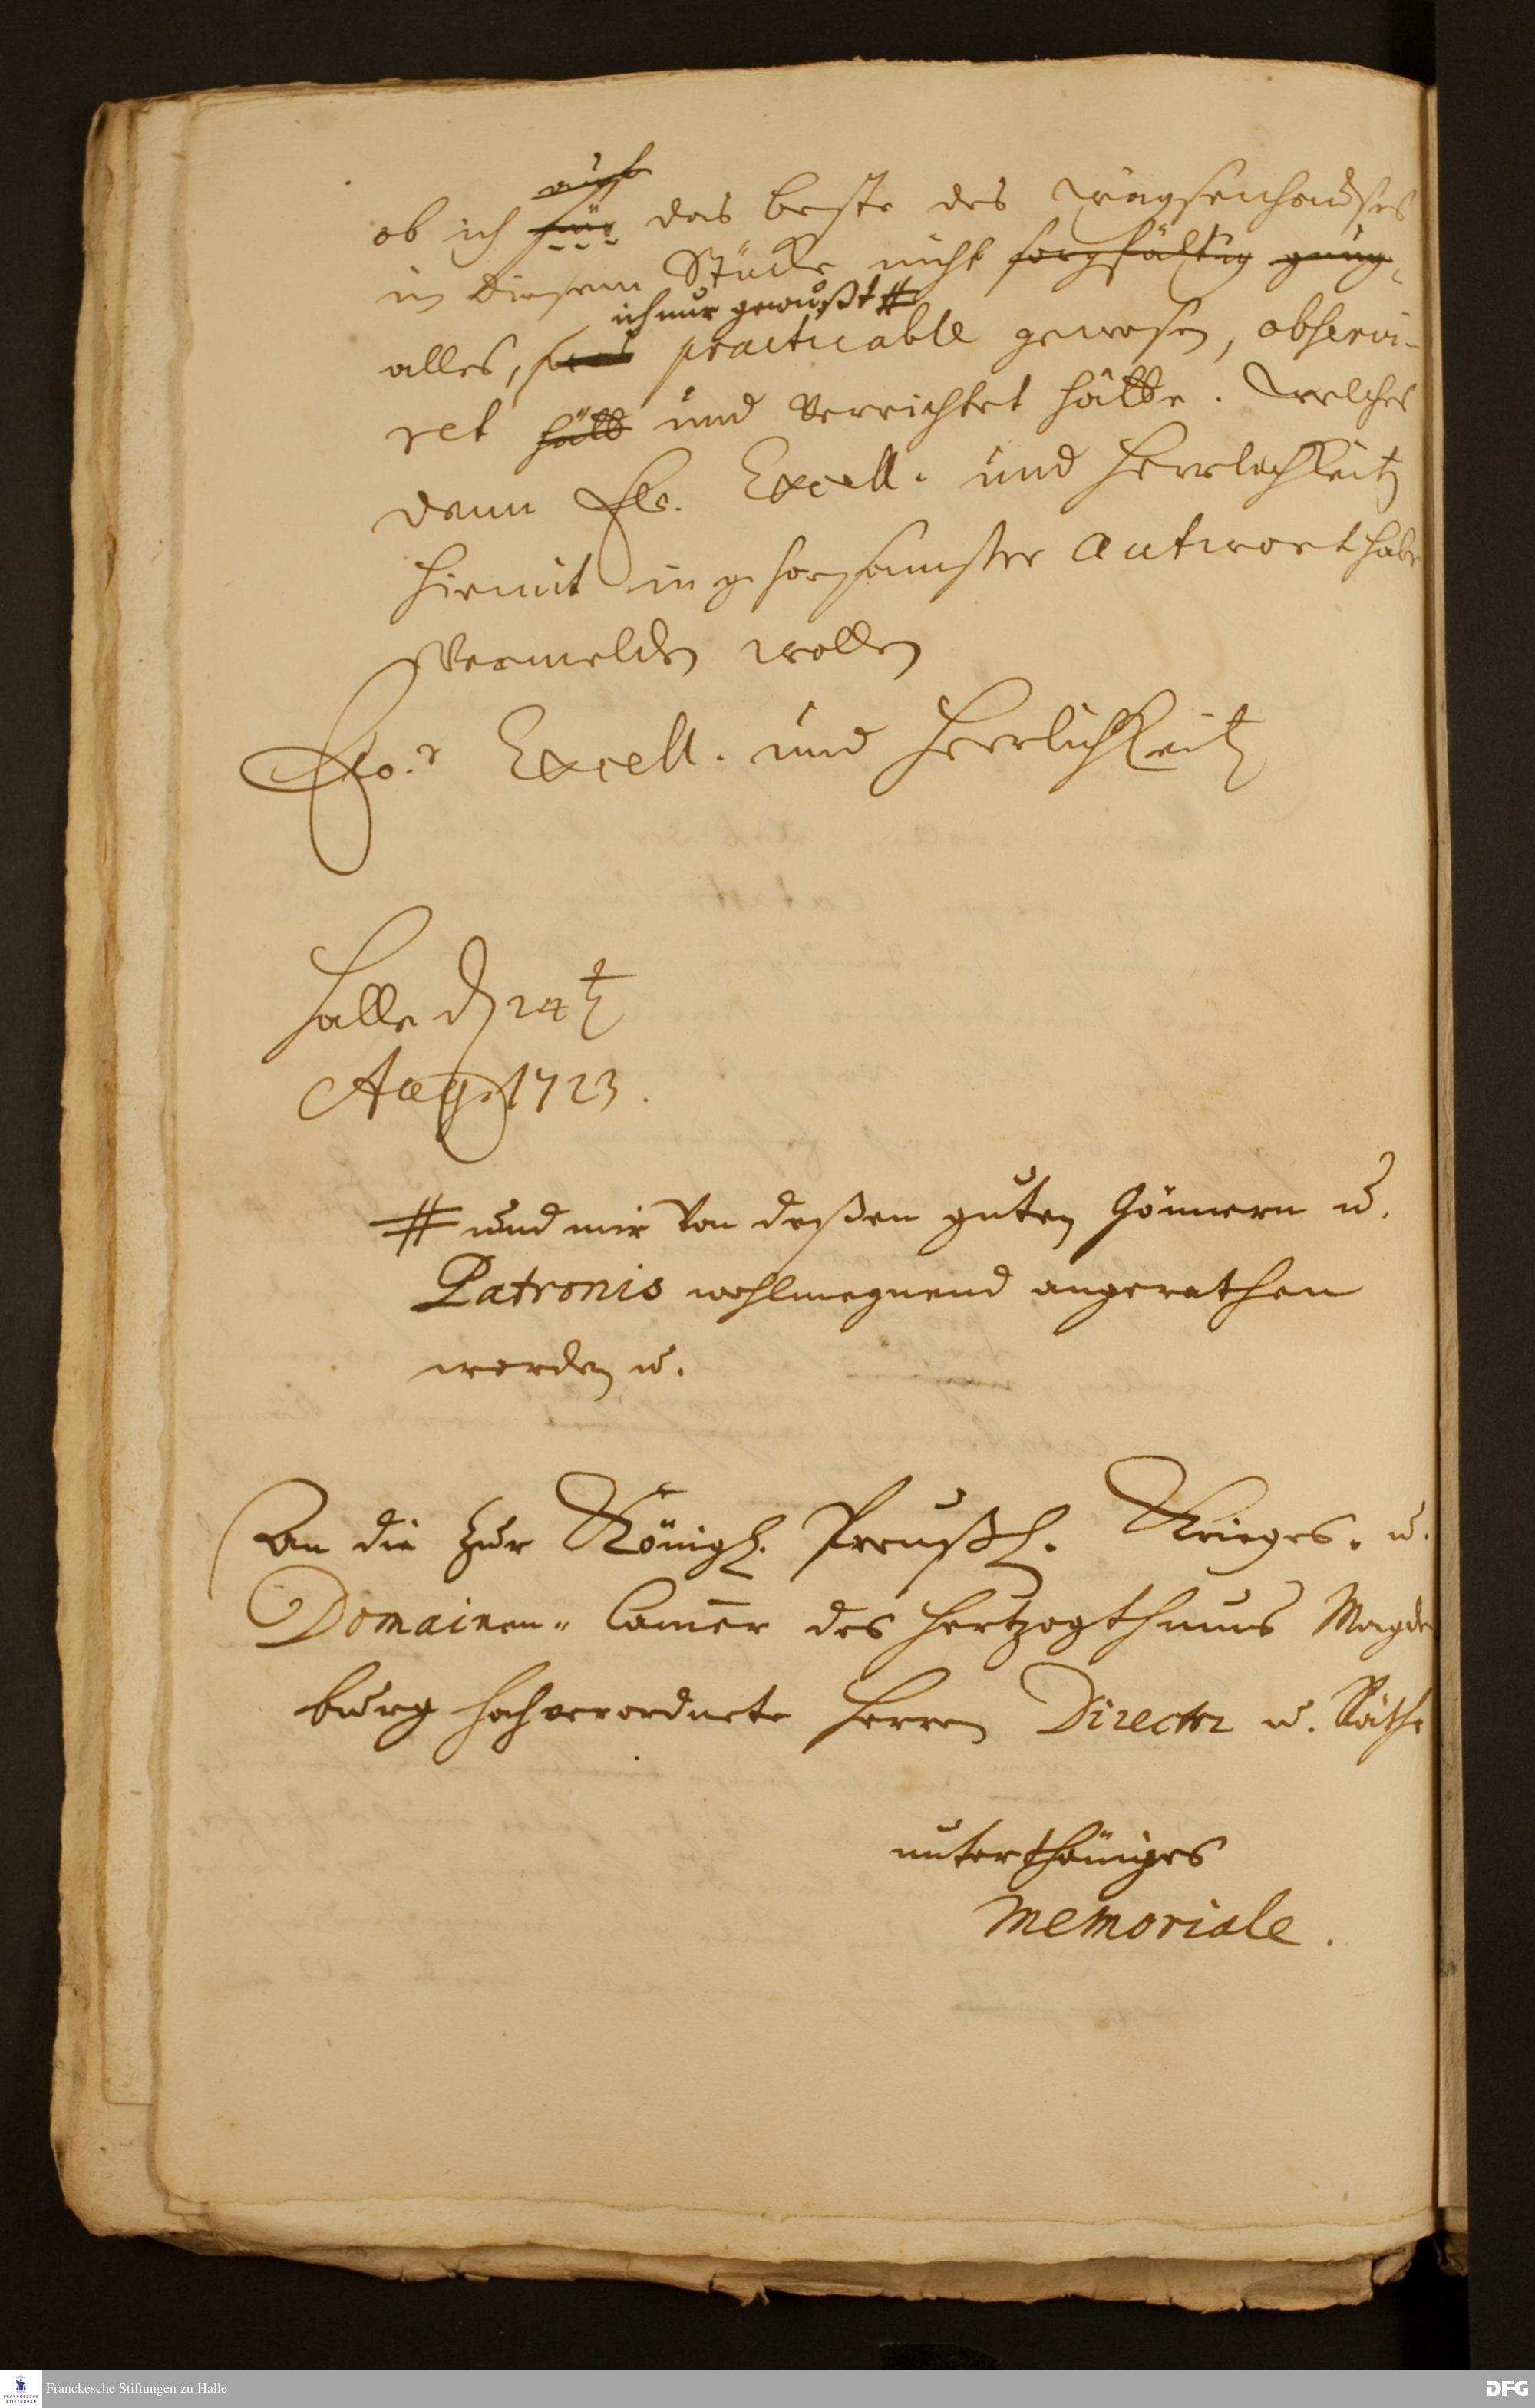 auf
ob ich für das beste des Waysenhauses
in diesem Stücke nicht sorgfältig gnug,
ich nur gewußt #
alles, was practicable gewesen, observi-
ret hätt und verrichtet hätte. Welches
denn Ew. Excell. und Herrlichkeitẽ
hiermit in gehorsamster Antwort habe
vermelden wollen
Ew.r Excell. und Herrlichkeitẽ
Halle d 24t
Aug. 1723.
# und mir von deßen guten Gönnern u.
Patronis wohlmeynend angerathen
worden u.
An die zur Königl. Preußl. Krieges- u.
Domainen- Cam̄er des Hertzogthums Magde
burg hochverordnete Herren Director u. Räthe
unterthäniges
Memoriale.
Franckesche Stiftungen zu Halle
FRANCKESCHE
STIFTUNGEN
DFG